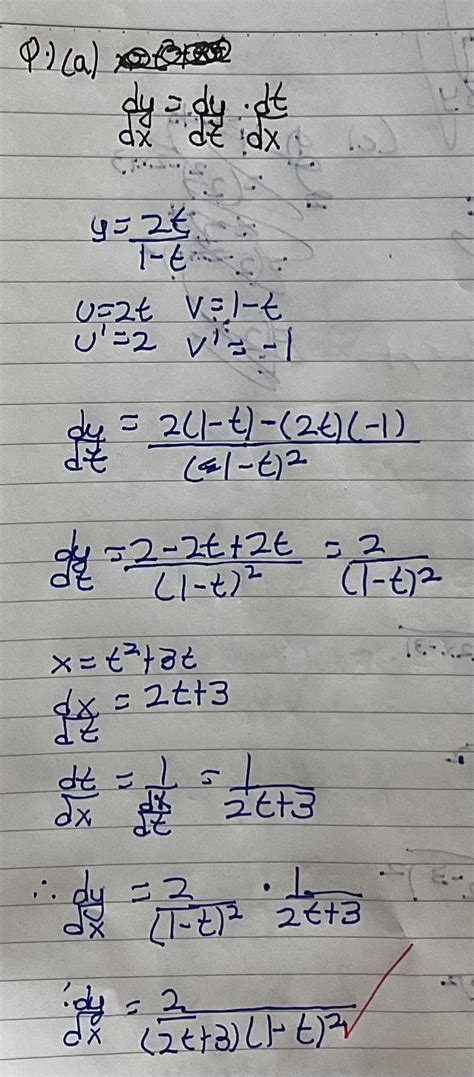 Q1(a)
dy/dx = dy/dt · dt/dx
y = 2t/1-t
U=2t V=1-t
U'=2 V'=-1
dy/dt = 2(1-t)-(2t)(-1)/(1-t)²
dy/dt = 2-2t+2t/(1-t)² = 2/(1-t)²
x=t²+3t
dx/dt = 2t+3
dt/dx = 1/dx/dt = 1/2t+3
∴ dy/dx = 2/(1-t)² · 1/2t+3
∴ dy/dx = 2/(2t+3)(1-t)²